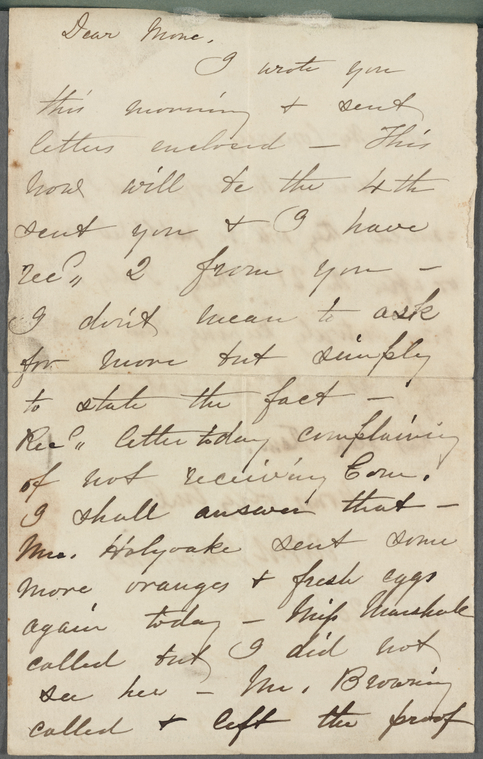 Dear Mone.
I wrote you
this morning & sent
letters enclosed — This
now will be the 4th
sent you & I have
rec'd 2 from you —
I don't mean to ask
for more but simply
to state the fact —
Rec'd letter today complaining
of not receiving Com.
I shall answer that —
Mrs. Holyoake sent some
more oranges & fresh eggs
again today — Miss Marshall
called but I did not
see her — Mr. Browning
called & left the proof